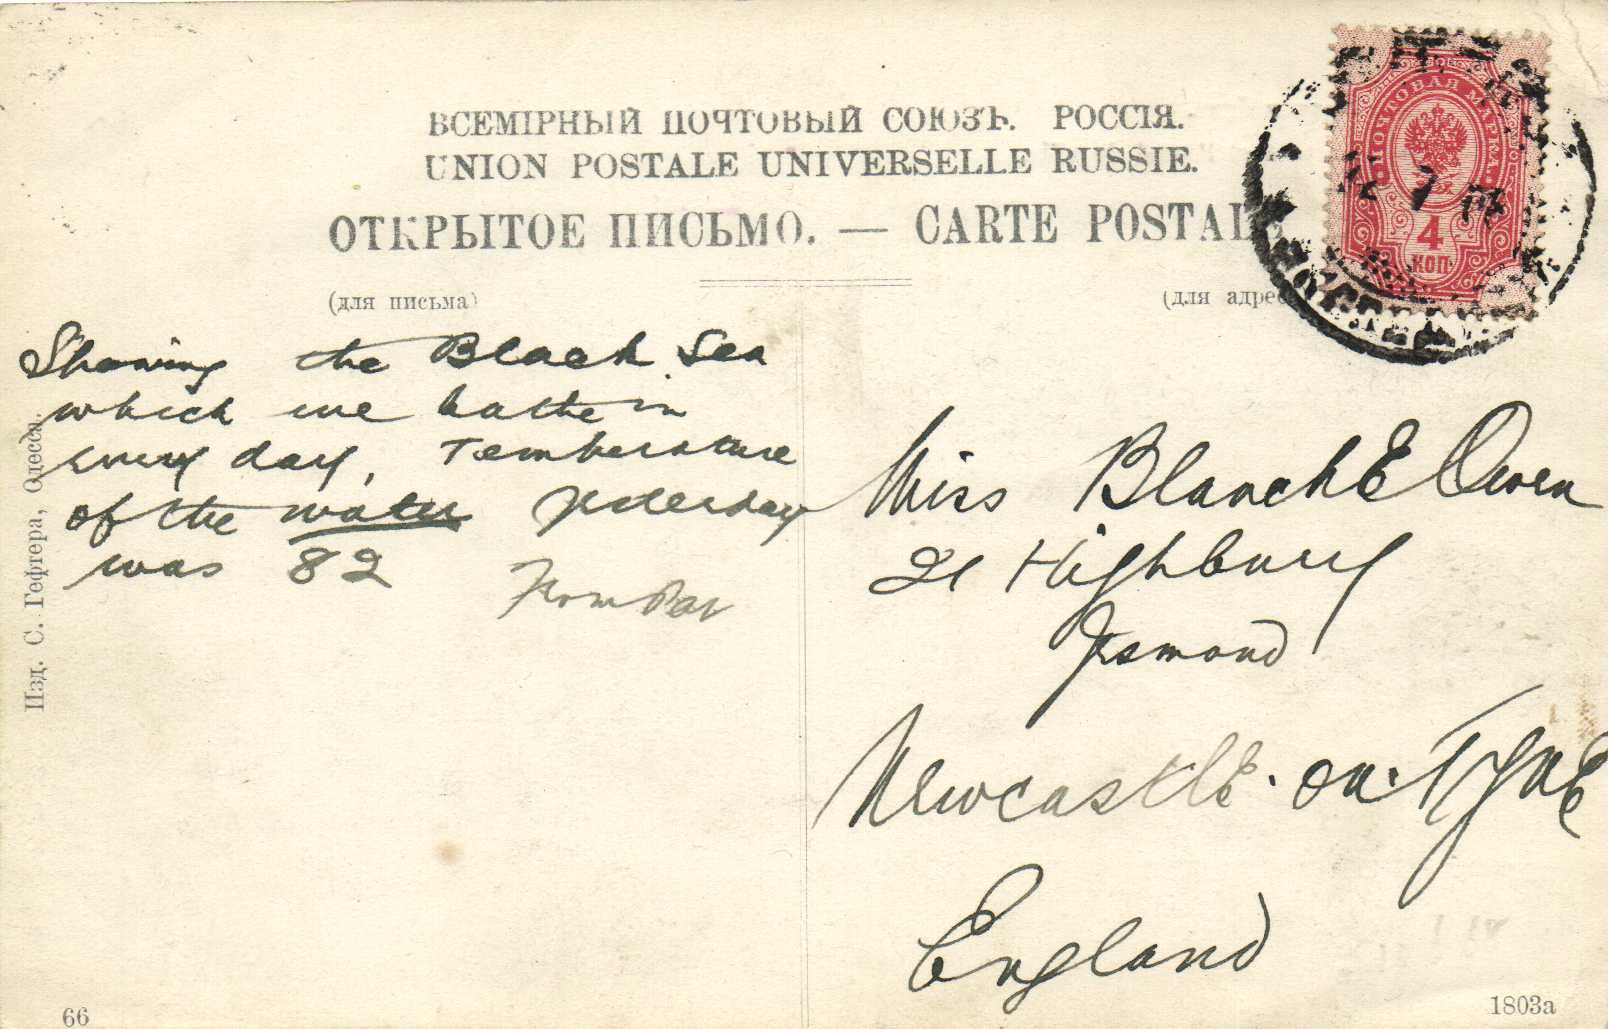 ВСЕМІРНЫЙ ПОЧТОВЫЙ СОЮЗЪ. РОССІЯ.
UNION POSTALE UNIVERSELLE RUSSIE.
ОТКРЫТОЕ ПИСЬМО. — CARTE POSTALE
(для письма)
(для адрес
ПОЧТОВАЯ МАРКА
4
КОП
Showing the Black Sea
which we bathe in
every day. Temperature
of the water yesterday
was 82
From
Miss Blanch E Owen
21 Highbury
Jesmond
Newcastle-on-Tyne
England
Изд. С. Гефтера, Одесса.
66
1803а